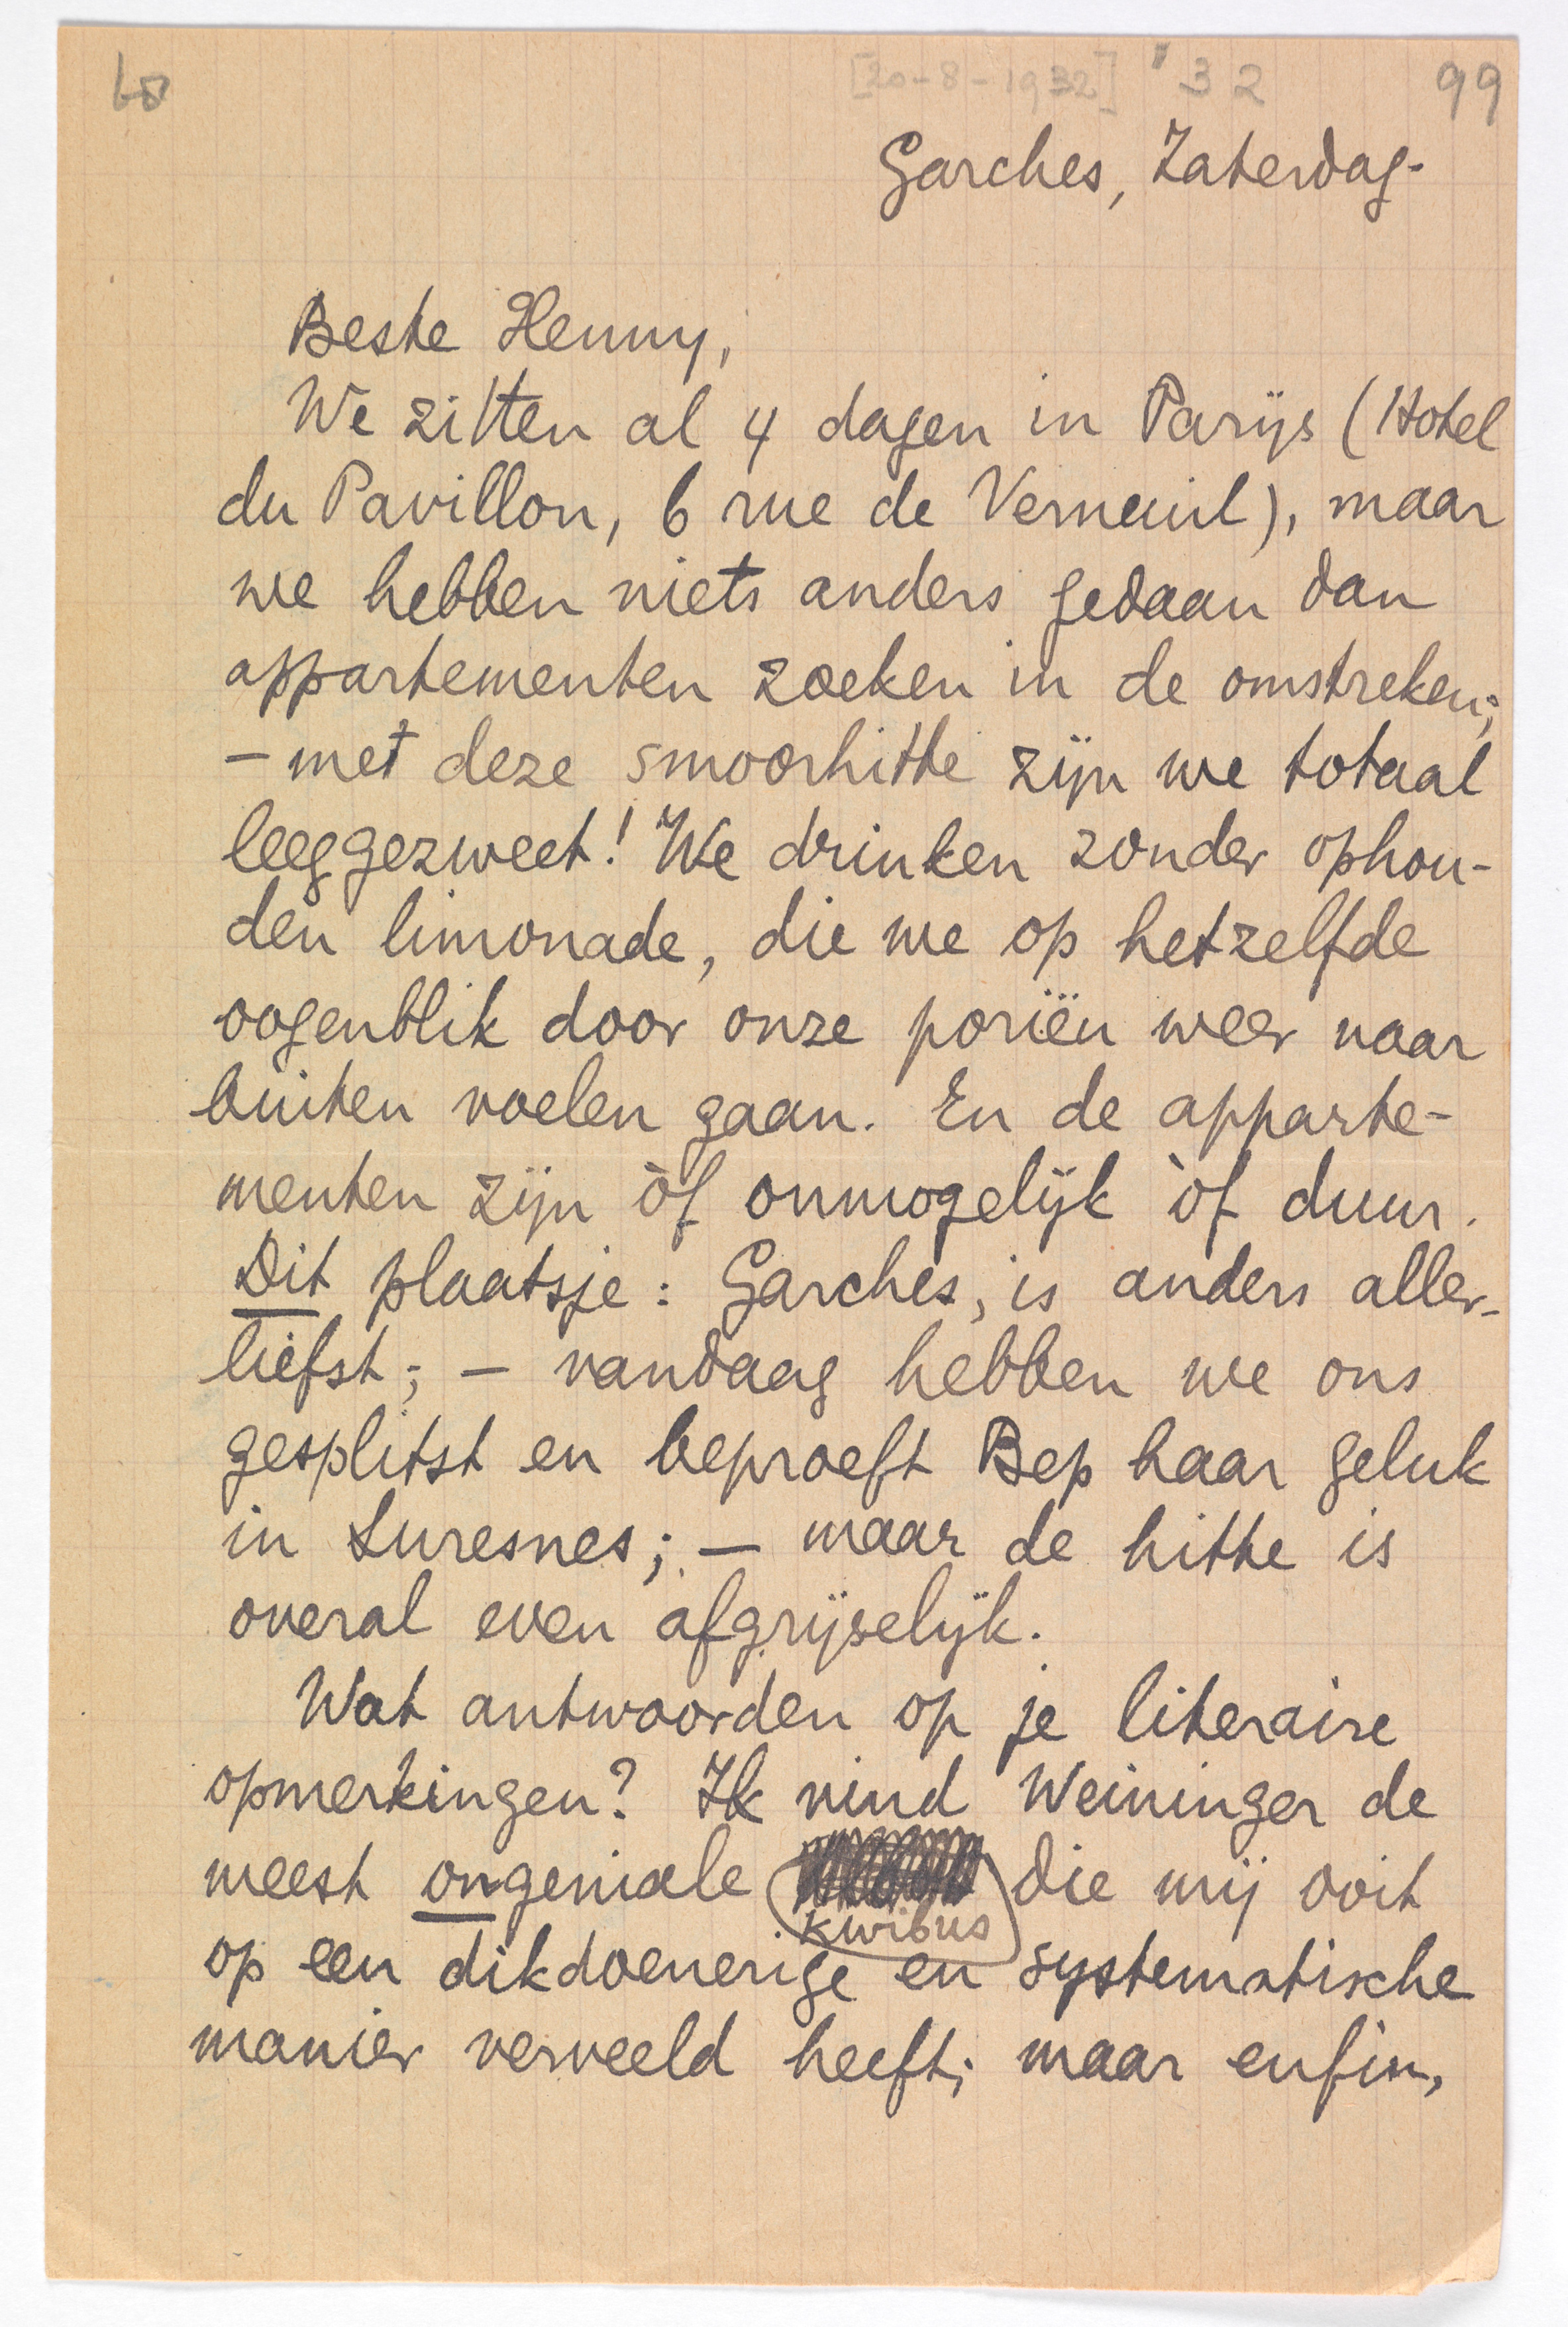 [20-8-1932] '32 99
Garches, Zaterdag.
Beste Henny,
We zitten al 4 dagen in Parijs (Hotel
du Pavillon, 6 rue de Verneuil), maar
we hebben niets anders gedaan dan
appartementen zoeken in de omstreken;
– met deze smoorhitte zijn we totaal
leeggezweet! We drinken zonder ophou-
den limonade, die we op hetzelfde
oogenblik door onze poriën weer naar
buiten voelen gaan. En de apparte-
menten zijn òf onmogelijk òf duur.
Dit plaatsje: Garches, is anders aller-
liefst; – vandaag hebben we ons
gesplitst en beproeft Bep haar geluk
in Suresnes; – maar de hitte is
overal even afgrijselijk.
Wat antwoorden op je literaire
opmerkingen? Ik vind Weininger de
meest ongeniale die mij ooit
kwibus
op een dikdoenerige en systematische
manier verveeld heeft; maar enfin,